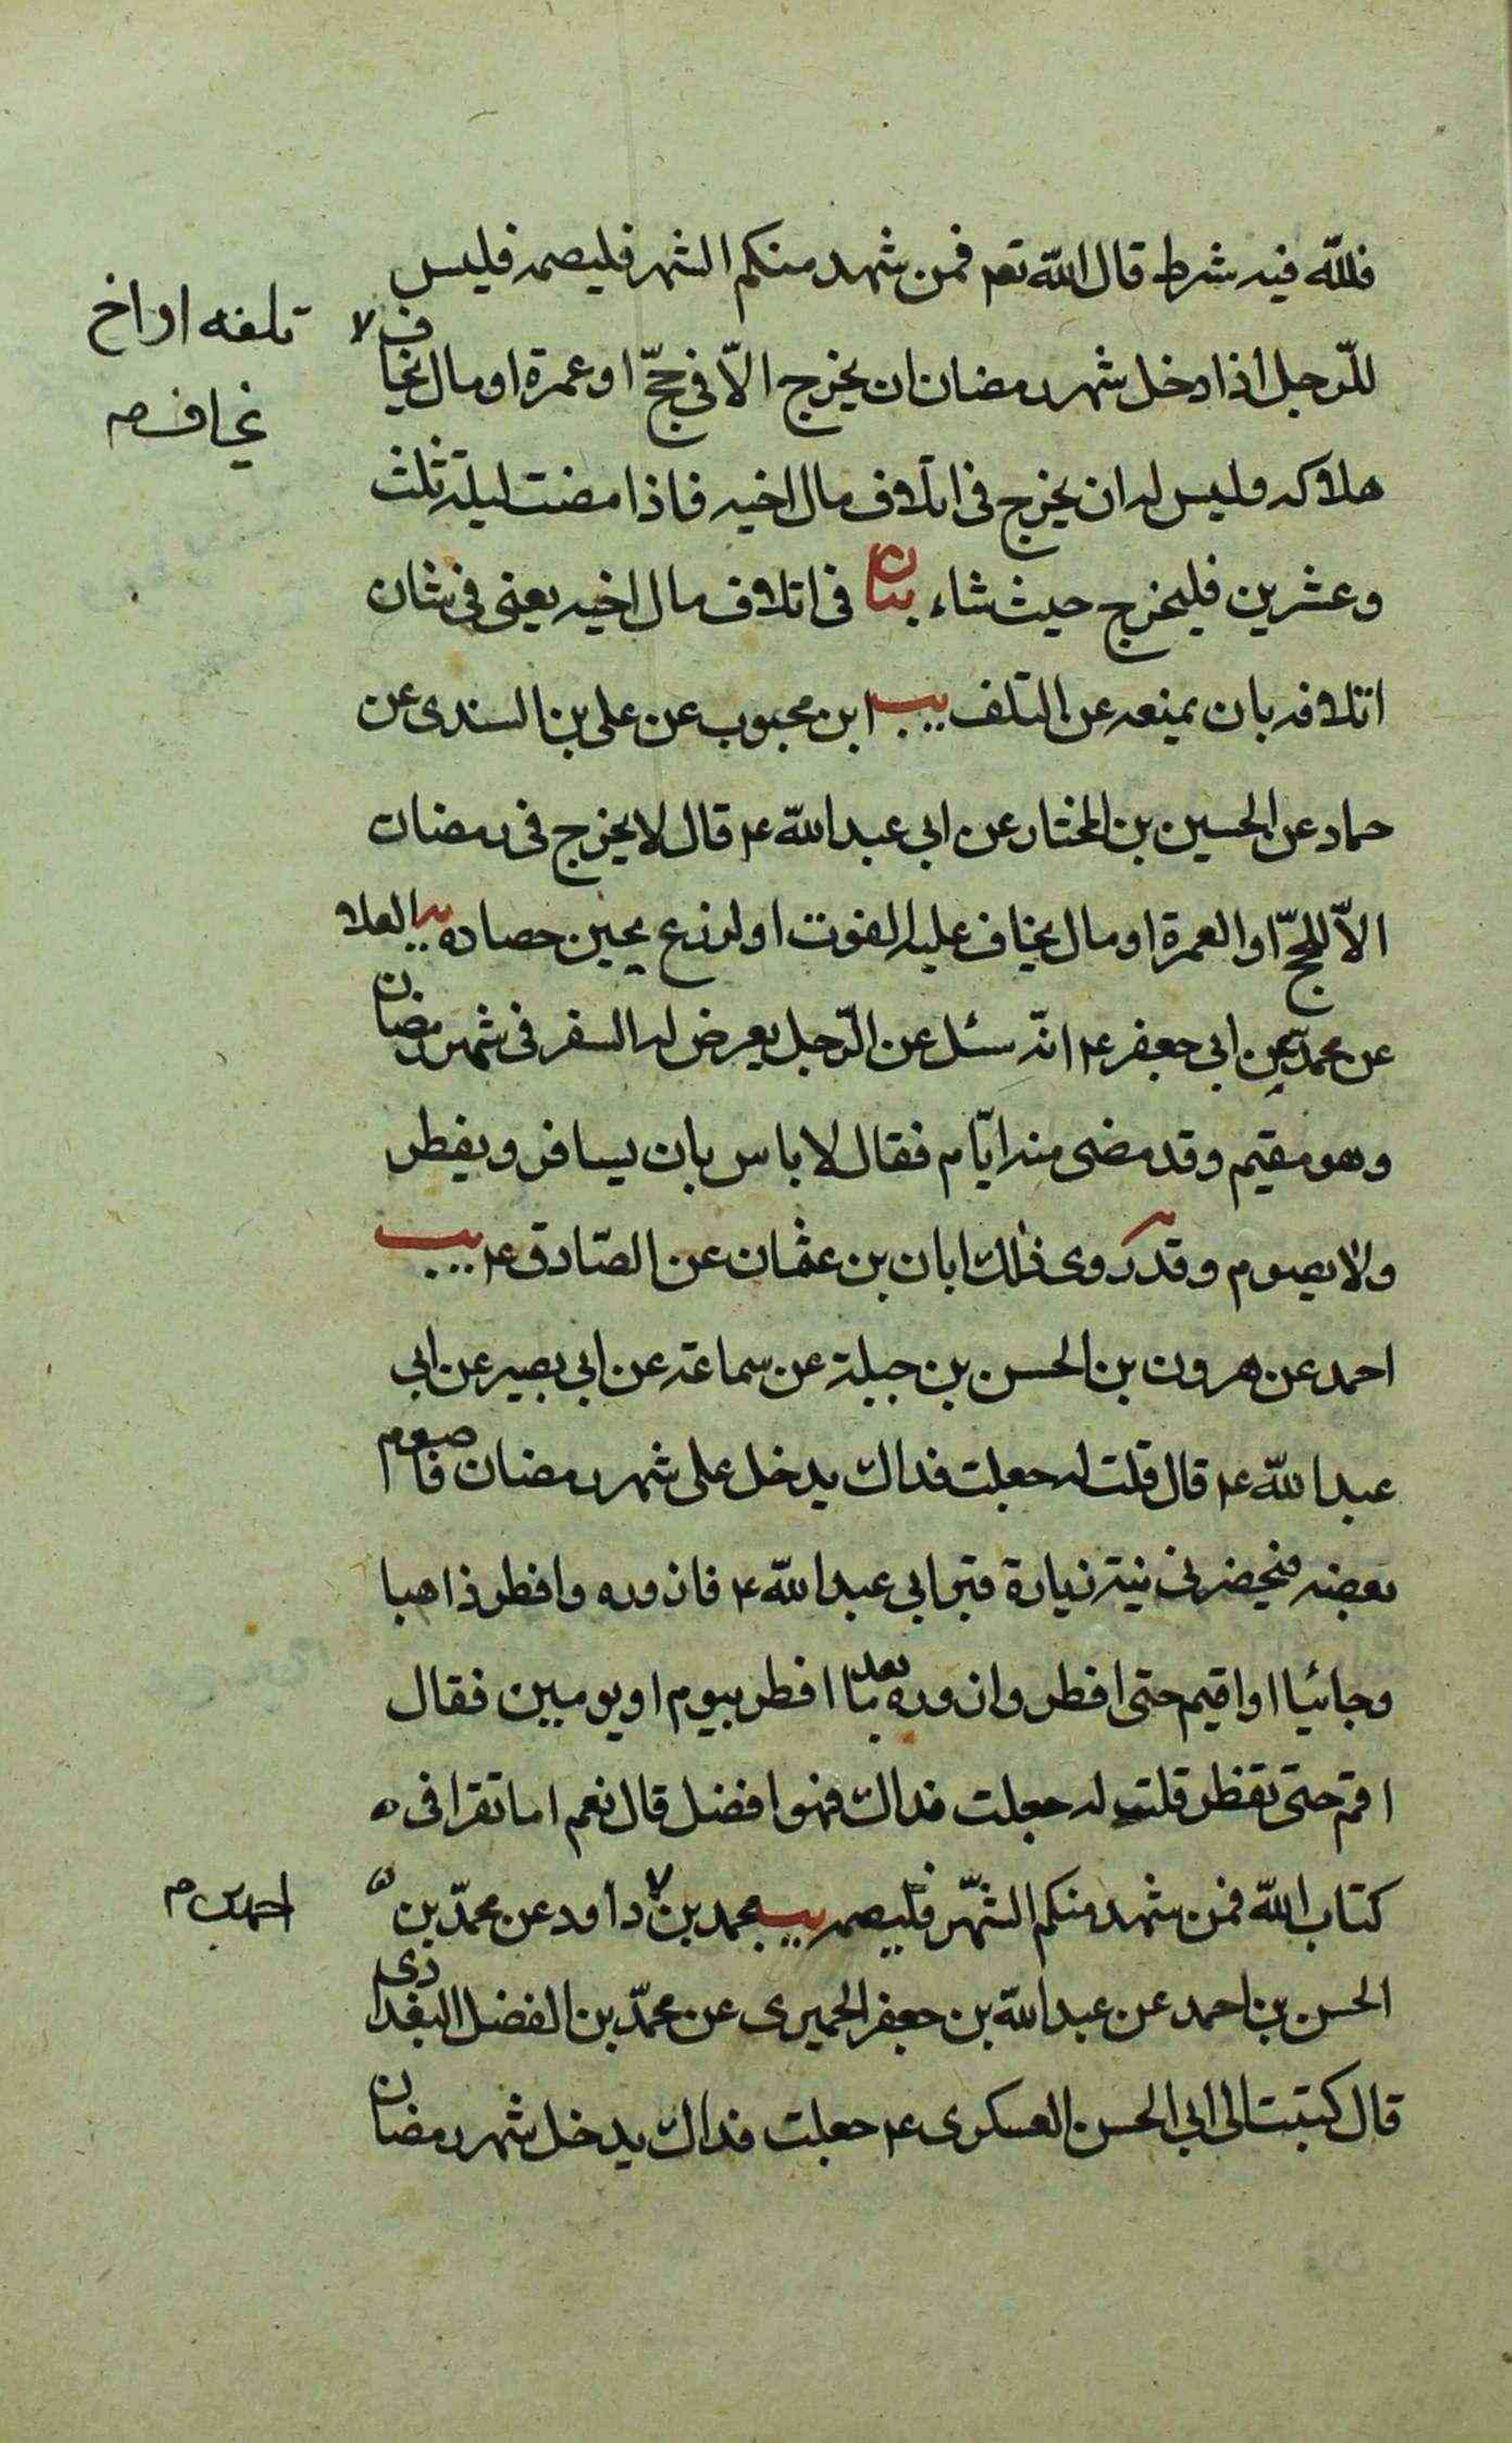 فللّه فيه شرط قال الله تعم فمن شهد منكم الشهر فليصمه فليس
للرّجل اذا دخل شهر رمضان ان يخرج الاّ فى حجّ او عمرة او مال يخاف
تلفه او اخ
يخاف م
هلاكه وليس له ان يخرج فى اتلاف مال اخيه فاذا مضت ليلة ثلث
وعشرين فليخرج حيث شاء بيان فى اتلاف مال اخيه يعنى فى شان
اتلافه بان يمنعه عن التلف يب ابن محبوب عن على بن السندى عن
حماد عن الحسين بن المختار عن ابى عبد الله ع قال لا يخرج فى رمضان
الاّ للحجّ او العمرة او مال يخاف عليه الفوت او لزرع يحين حصاده يه العلا
عن محمّد عن ابى جعفر ع انّه سئل عن الرّجل يعرض له السفر فى شهر رمضان
وهو مقيم وقد مضى منه ايّام فقال لا باس بان يسافر ويفطر
ولا يصوم وقد روى ذلك ابان بن عثمان عن الصّادق ع يب
احمد عن هرون بن الحسن بن جبلة عن سماعة عن ابى بصير عن ابى
عبد الله ع قال قلت له جعلت فداك يدخل على شهر رمضان فاصوم
بعضه فيحضرنى نية زيارة قبر ابى عبد الله ع فازوره وافطر ذاهبا
وجائيا او اقيم حتى افطر وازوره بعد ما افطر بيوم او يومين فقال
اقم حتى تفطر قلت له جعلت فداك فهو افضل قال نعم اما تقرا فى
كتاب الله فمن شهد منكم الشّهر فليصمه يب محمد بن داود عن محمّد بن
احمد بن م
الحسن بن احمد عن عبد الله بن جعفر الحميرى عن محمّد بن الفضل البغدادى
قال كتبت الى ابى الحسن العسكرى ع جعلت فداك يدخل شهر رمضان